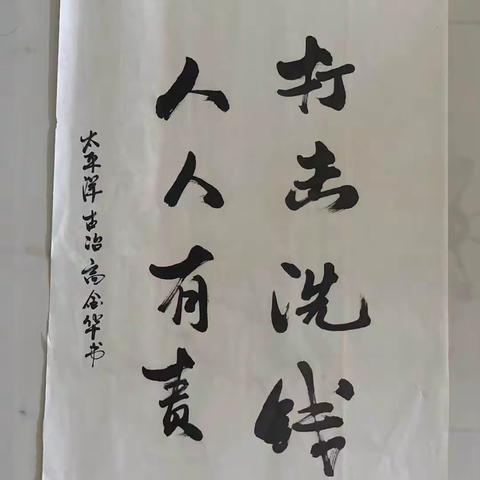 打击洗钱
人人有责
太平洋古冶高金华书